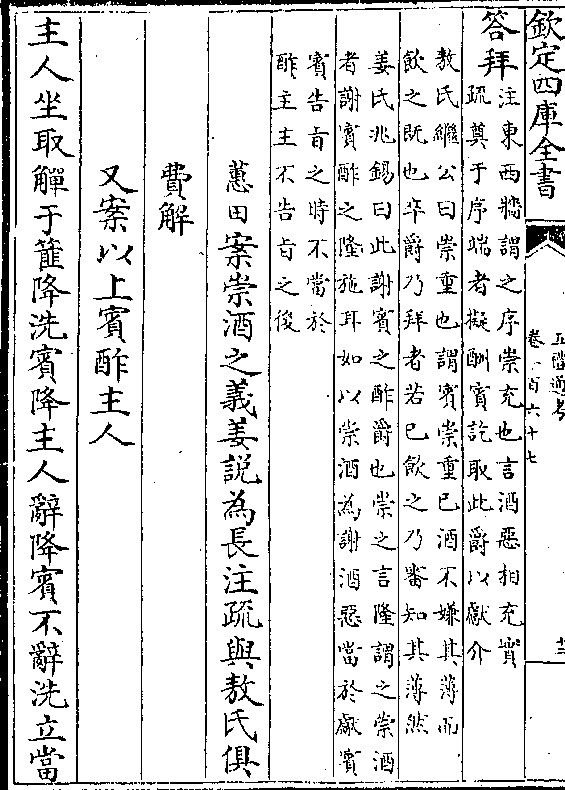 欽定四庫全書
五禮通考
卷一百六十七
十二
答拜
注東西牆謂之序崇充也言酒惡相充實
疏奠于序端者擬酬賓訖取此爵以獻介
敖氏繼公曰崇重也謂賓崇重已酒不嫌其薄而
飲之既也卒爵乃拜者若已飲之乃審知其薄然
姜氏兆錫曰此謝賓之酢爵也崇之言隆謂之崇酒
者謝賓酢之隆施耳如以崇酒為謝酒惡當於獻賓
賓告旨之時不當於
酢主主不告旨之後
蕙田案崇酒之義姜説為長注疏與敖氏俱
費解
又案以上賓酢主人
主人坐取觶于篚降洗賓降主人辭降賓不辭洗立當